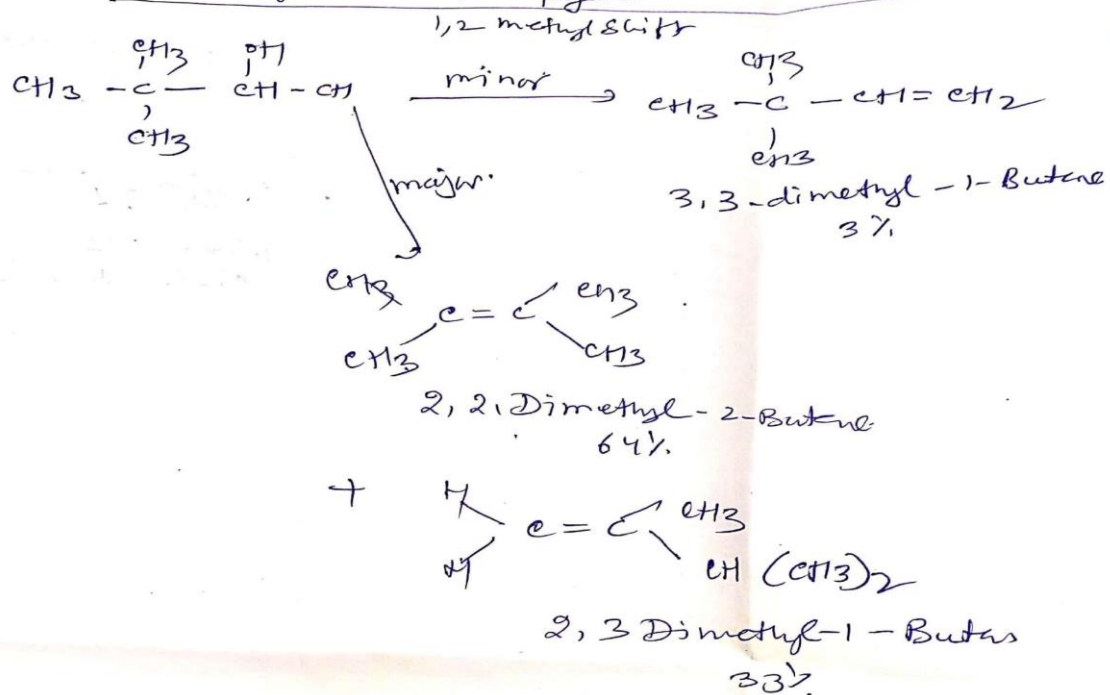 1,2 methyl shift
CH3 OH
CH3 - C - CH - CH
CH3
minor
CH3
CH3 - C - CH = CH2
CH3
3,3-dimethyl-1-Butene
3%
major.
CH3 CH3
C = C
CH3 CH3
2,2, Dimethyl-2-Butene
64%
+ H CH3
C = C
H CH (CH3)2
2,3 Dimethyl-1-
33%